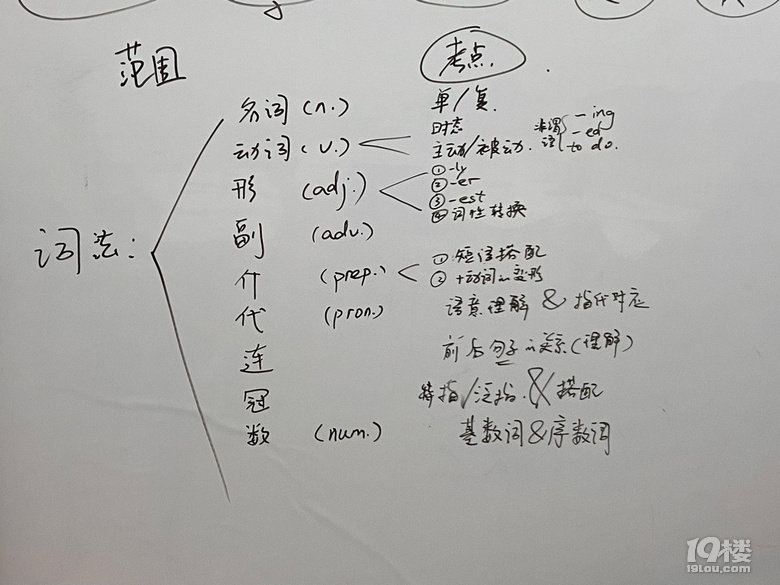 范围 考点.
名词 (n.) 单/复.
时态
动词 (v.) 主动/被动. 非谓语 -ing
-ed
to do.
形 (adj.) ①-ly
②-er
③-est
④词性转换
副 (adv.)
词法:
介 (prep.) ①短语搭配
② +动词的变形
代 (pron.) 语意理解 & 指代对应
连 前后句子的关系(理解)
冠 特指/泛指 & 搭配
数 (num.) 基数词&序数词
19楼
19lou.com